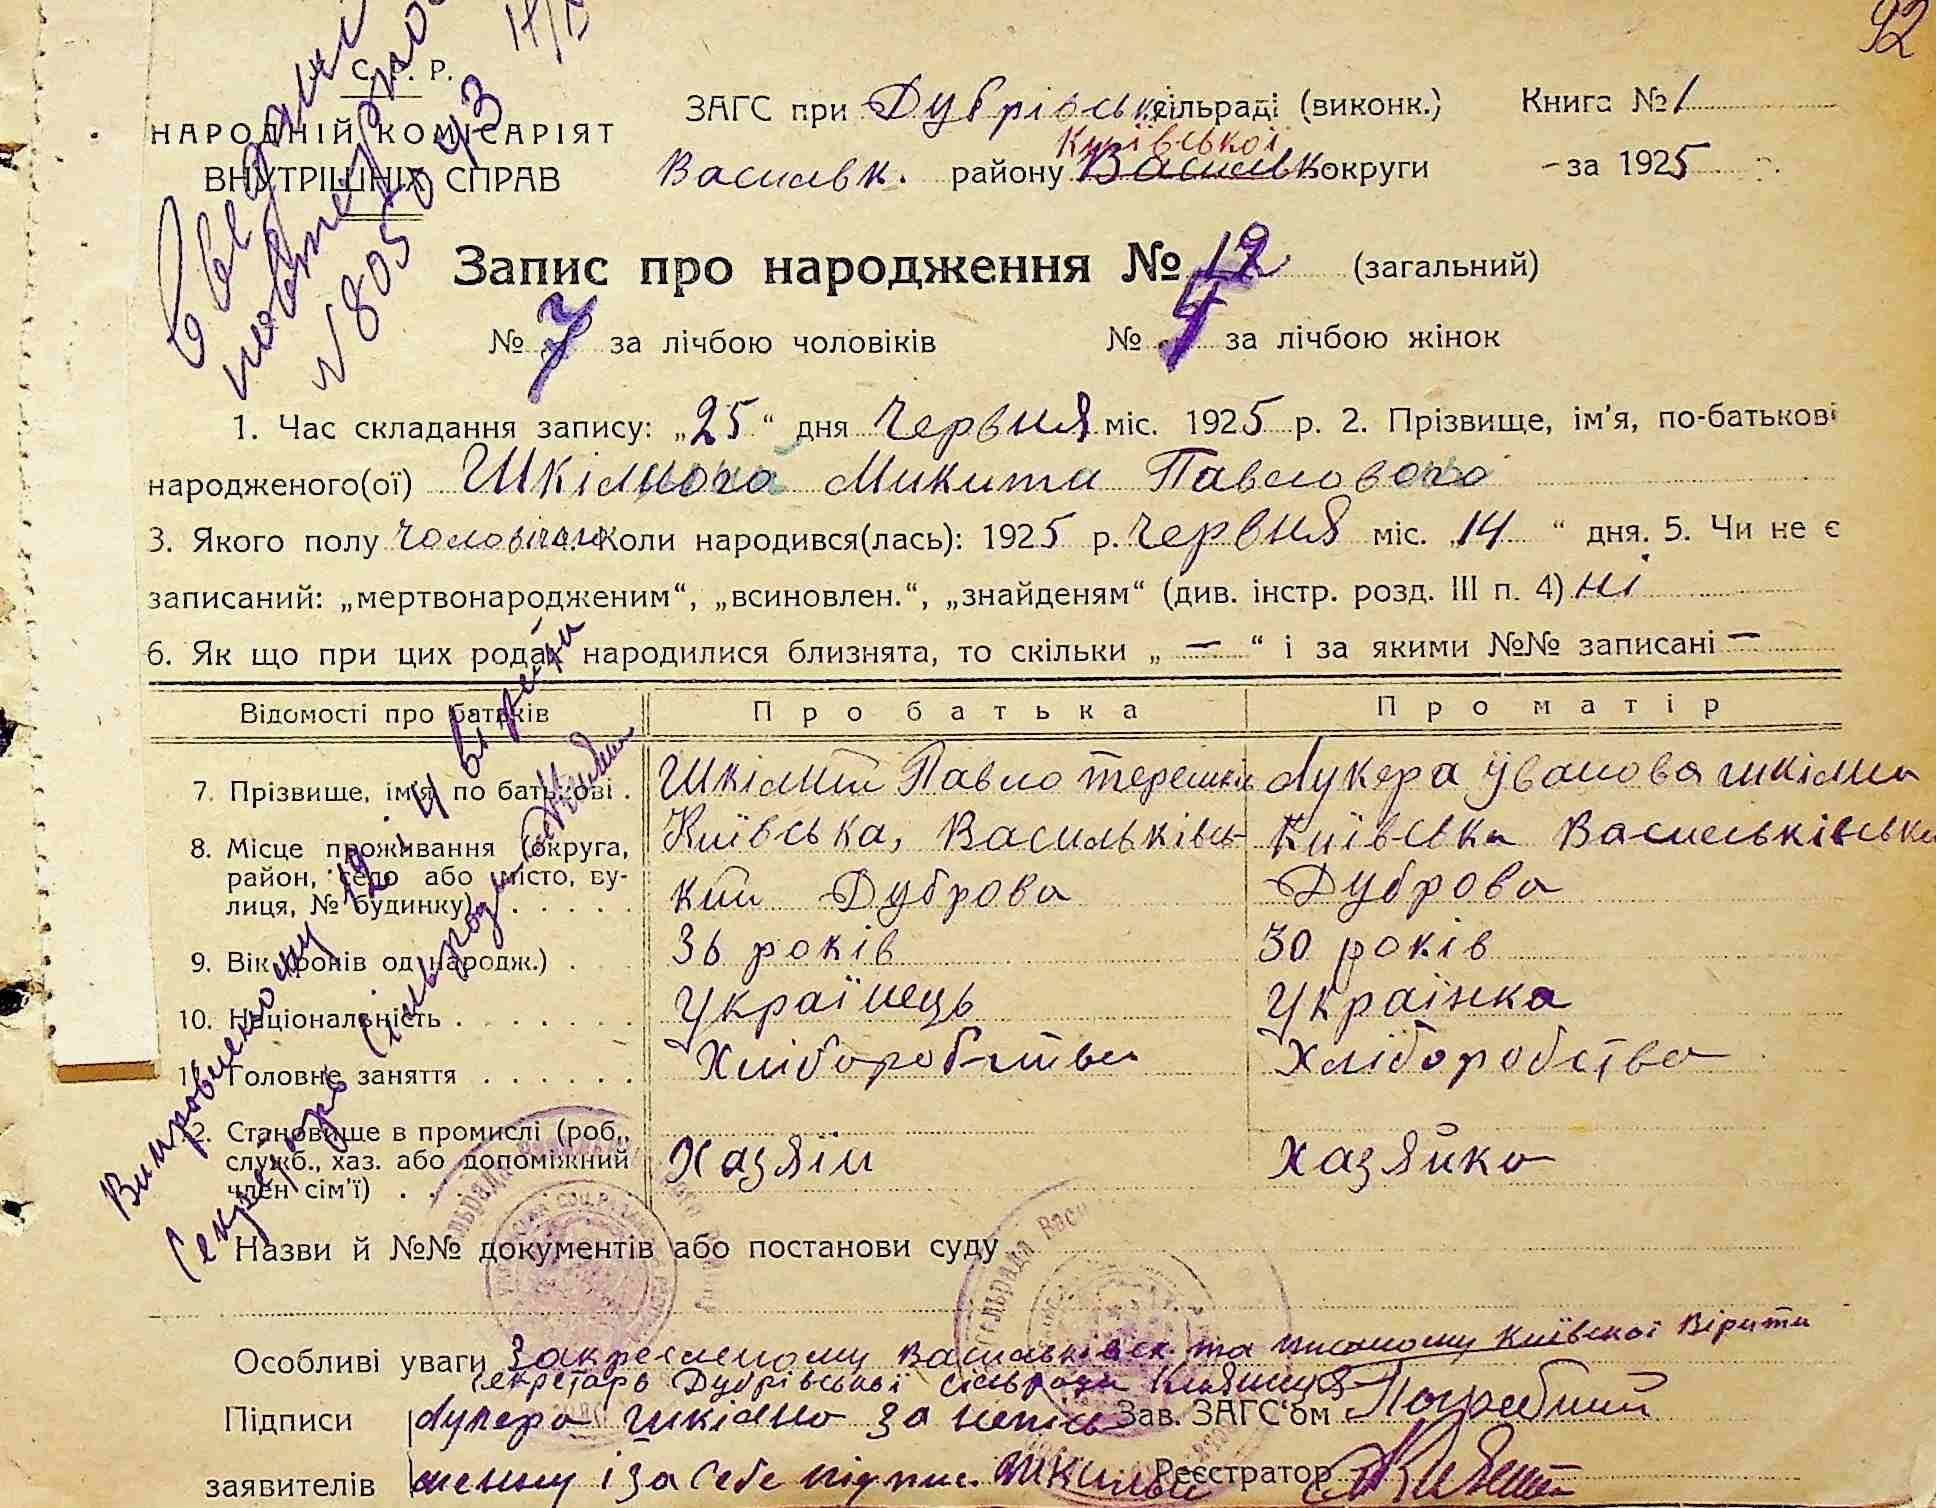 92
С. Р. Р.
НАРОДНІЙ КОМІСАРІЯТ
ВНУТРІШНІХ СПРАВ
ЗАГС при Дубрівськ. сільраді (виконк.) Книга № 1
Київської
Васильк. району Васильк округи — за 1925
№ 805093
Запис про народження № 12 (загальний)
№ 7 за лічбою чоловіків № 5 за лічбою жінок
1. Час складання запису: „25“ дня Червня міс. 1925 р. 2. Прізвище, ім'я, по-батькові
народженого(ої) Шкільного Микита Павлового
3. Якого полу чоловічого Коли народився(лась): 1925 р. Червня міс. „14“ дня. 5. Чи не є
записаний: „мертвонародженим“, „всиновлен.“, „знайденям“ (див. інстр. розд. III п. 4) ні
6. Як що при цих родах народилися близнята, то скільки „—“ і за якими №№ записані —
Відомості про батьків Про батька Про матір
7. Прізвище, ім'я, по батькові . Шкільний Павло Лукера Іванова Шкільна
8. Місце проживання (округа, район, село або місто, вулиця, № будинку) Київська, Васильківський Дуброва Київська Васильківська Дуброва
9. Вік (років од народж.) . 36 років 30 років
10. Національність . . . . . . . Українець Українка
11. Головне заняття . . . . . . . Хліборобство Хліборобство
12. Становище в промислі (роб., служб., хаз. або допоміжний член сім'ї) . . Хазяїн Хазяйка
Виправленому 12 і 4 вірити
Секретарь сільради
Назви й №№ документів або постанови суду
Особливі уваги Закресленому Васильківск та писаному Київскої Вірити
секретарь Дубрівської сільради
Підписи Лукера Шкільна за Зав. ЗАГС'ом
заявителів і за себе підпис. Реєстратор